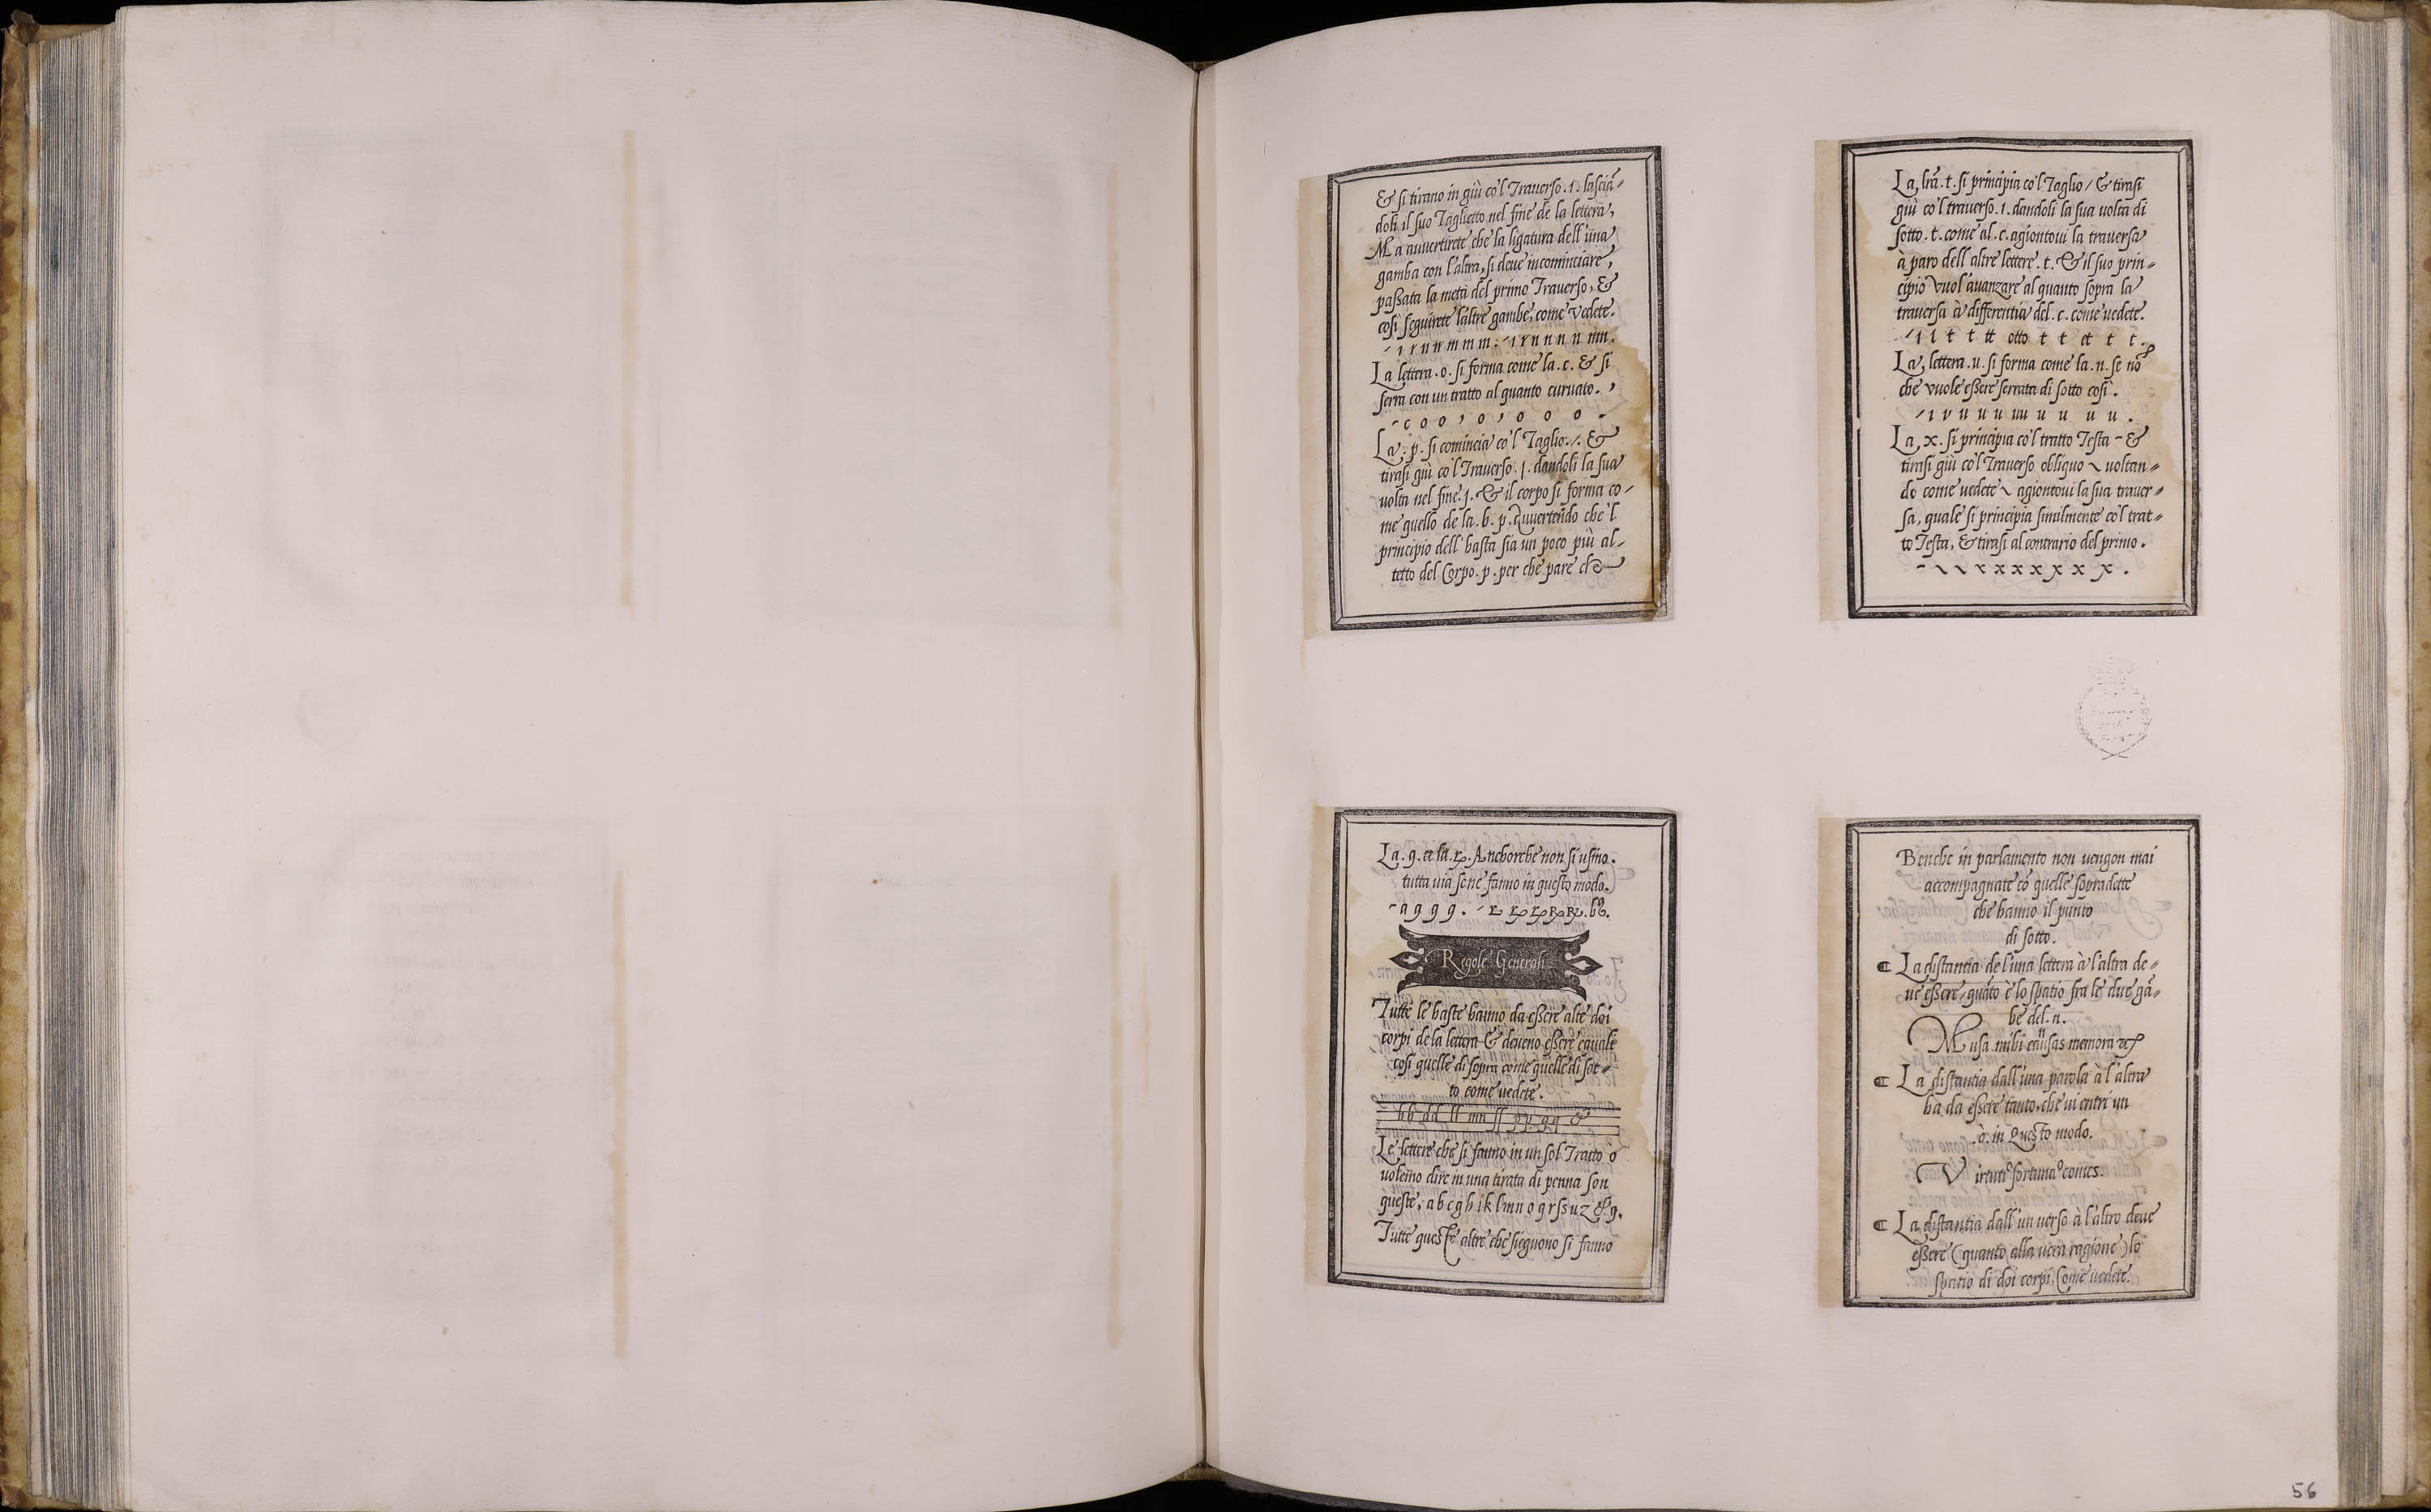 & si tirano in giù co'l Trauerso .ı. lasciā-
doli il suo Taglietto nel fine de la lettera,
Ma auuertirete che la ligatura dell'una
gamba con l'altra, si deue incominciare,
paßata la metà del primo Trauerso, &
cosi seguirete l'altre gambe, come vedete.
La lettera .o. si forma come la .c. & si
serra con un tratto al quanto curuato. ,
- c o o , o , o o o -
La .p. si comincia co'l Taglio ./. &
tirasi giù co'l Trauerso .ſ. dandoli la sua
uolta nel fine .ſ. & il corpo si forma co-
me quello de la .b. p. Auuertendo che'l
principio dell'hasta sia un poco più al-
tetto del Corpo .p. per che pare che
La, lrā .t. si principia co'l Taglio / & tirasi
giù co'l trauerso .ı. dandoli la sua uolta di
sotto .t. come al .c. agiontoui la trauersa
à paro dell'altre lettere .t. & il suo prin-
cipio vuol'auanzare al quanto sopra la
trauersa à differentia del .c. come uedete.
-ı ı t t tt otto t t ct t t.
La, lettera .u. si forma come la .n. se nō
che vuole eßere serrata di sotto cosi .
La, x. si principia co'l tratto Testa - &
tirasi giù co'l Trauerso obliquo ~ uoltan-
do come uedete ~ agiontoui la sua trauer-
sa, quale si principia similmente co'l trat-
to Testa, & tirasi al contrario del primo .
La .9. et la .ꝝ. Anchorche non si usino.
tutta uia se ne fanno in questo modo.
Regole Generali
Tutte le haste hanno da eßere alte doi
corpi de la lettera & deueno eßere equali
cosi quelle di sopra come quelle di sot-
to come uedete .
bb dd ll mn ſſ pp qq &
Le lettere che si fanno in un sol Tratto ò
uolemo dire in una tirata di penna son
queste, a b c g h i k l m n o q r ſ s u z & 9.
Tutte queste altre che sieguono si fanno
Benche in parlamento non uengon mai
accompagnate cō quelle sopradette
che hanno il punto
di sotto.
¶ La distantia de l'una lettera à l'altra de-
ue eßere, quāto è lo spatio fra le due gā-
be del .n.
n
Musa mihi causas memora &c
¶ La distantia dall'una parola à l'altra
ha da eßere tanto, che ui entri un
.ò. in Questo modo.
Virtuti o fortuna o comes.
¶ La distantia dall'un uerso à l'altro deue
eßere (quanto alla uera ragione) lo
spatio di doi corpi, Come uedete.
56